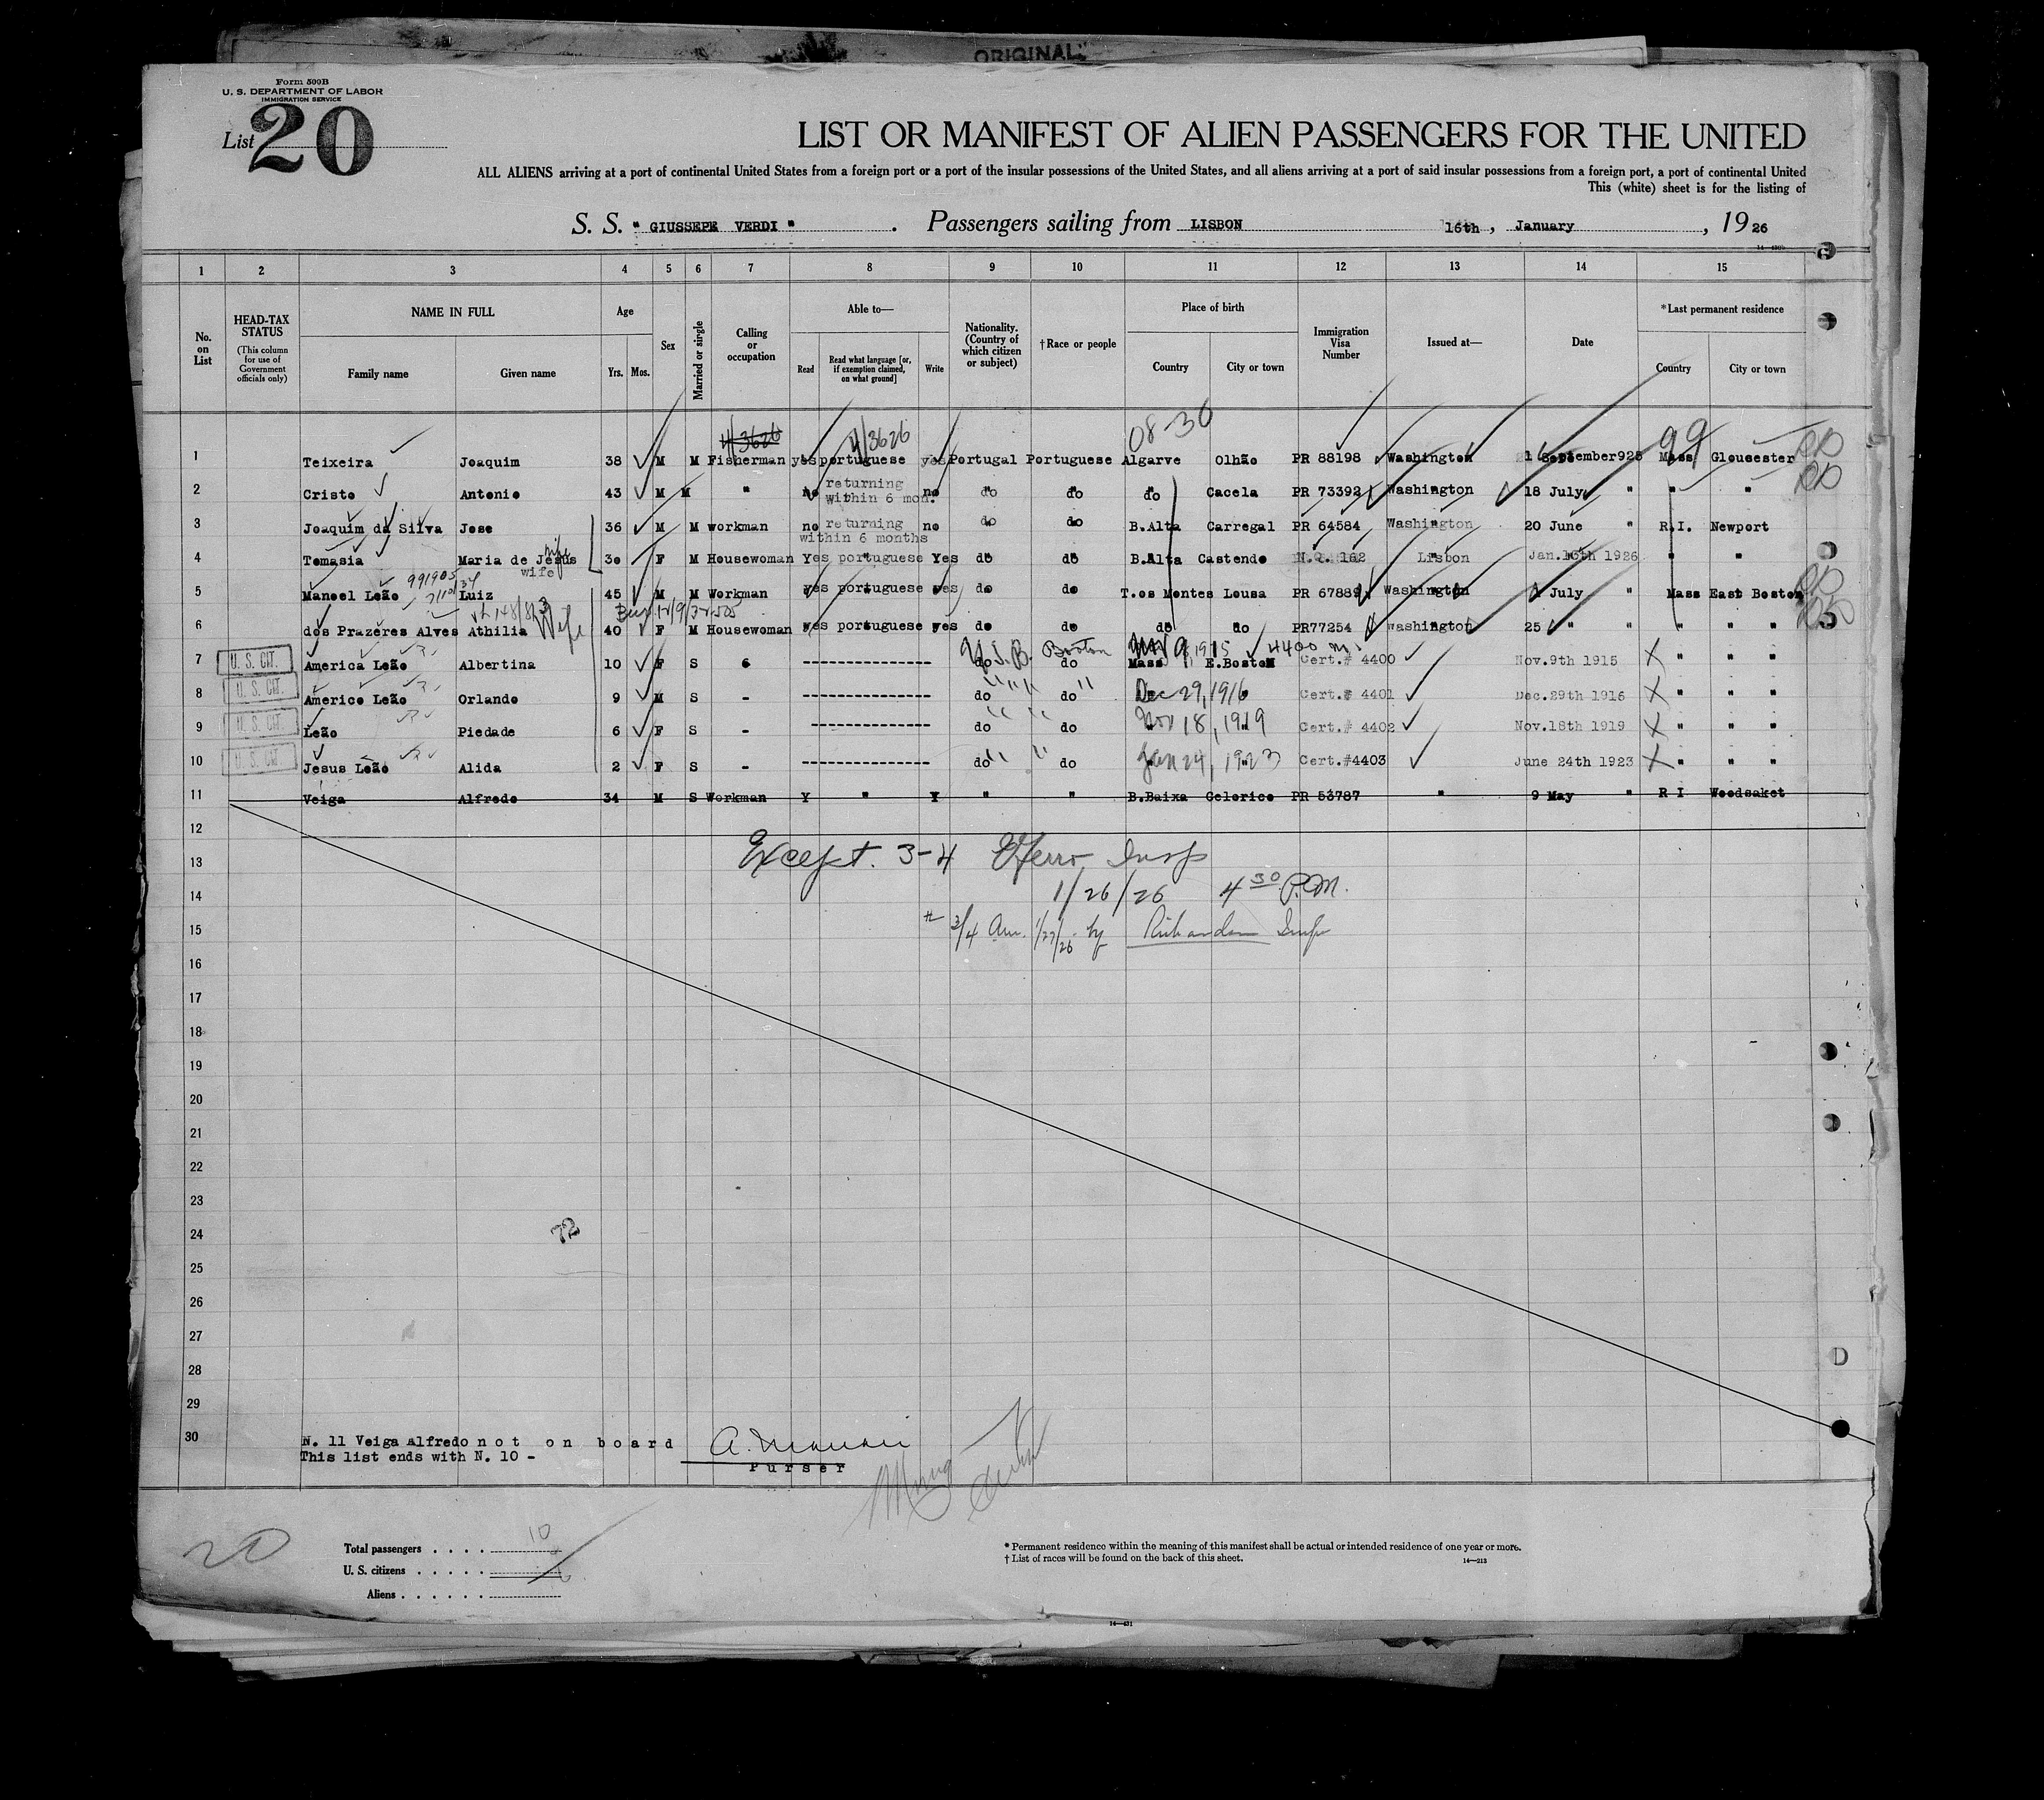 ORIGINAL
Form 500B
U. S. DEPARTMENT OF LABOR
IMMIGRATION SERVICE
List 20
LIST OR MANIFEST OF ALIEN PASSENGERS FOR THE UNITED
ALL ALIENS arriving at a port of continental United States from a foreign port or a port of the insular possessions of the United States, and all aliens arriving at a port of said insular possessions from a foreign port, a port of continental United
This (white) sheet is for the listing of
S. S. " GIUSSEPE VERDI " . Passengers sailing from LISBON 16th , January , 19 26
1 2 3 4 5 6 7 8 9 10 11 12 13 14 15
No. on List
HEAD-TAX STATUS (This column for use of Government officials only)
NAME IN FULL
Family name Given name
Age
Yrs. Mos.
Sex
Married or single
Calling or occupation
Able to—
Read
Read what language [or, if exemption claimed, on what ground]
Write
Nationality. (Country of which citizen or subject)
†Race or people
Place of birth
Country City or town
Immigration Visa Number
Issued at—
Date
*Last permanent residence
Country City or town
4/3626 4/3626 08-30 99
1 Teixeira Joaquim 38 M M Fisherman yes portuguese yes Portugal Portuguese Algarve Olhão PR 88198 Washington 1 September 925 Mass Gloucester
2 Cristo Antonio 43 M M " no returning within 6 mon. no do do do Cacela PR 73392 Washington 18 July " " "
3 Joaquim da Silva Jose 36 M M workman no returning within 6 months no do do B.Alta Carregal PR 64584 Washington 20 June " R.I. Newport
4 Tomasia Maria de Jesus wife 30 F M Housewoman Yes portuguese Yes do do B.Alta Castendo N.Q. 162 Lisbon Jan.16th 1926 " "
5 Manoel Leão Luiz 45 M M Workman yes portuguese yes do do T.os Montes Lousa PR 67889 Washington 1 July " Mass East Boston
6 dos Prazeres Alves Athilia Wife 40 F M Housewoman yes portuguese yes do do do do PR77254 Washington 25 " " " " "
7 U. S. CIT. America Leão Albertina 10 F S do do Boston Mass E.Boston Cert.# 4400 Nov.9th 1915 X " " "
8 U. S. CIT. Americo Leão Orlando 9 M S - do do Dec 29, 1916 Cert.# 4401 Dec.29th 1916 X " " "
9 U. S. CIT. Leão Piedade 6 F S - do do Nov 18, 1919 Cert.# 4402 Nov.18th 1919 X " " "
10 U. S. CIT. Jesus Leão Alida 2 F S - do do Jan 24, 1923 Cert.#4403 June 24th 1923 X " " "
11 Veiga Alfredo 34 M S Workman Y " Y " " B.Baixa Celorico PR 53787 " 9 May " R I Woodsaket
12
13 Except. 3-4 Insp
14 1/26/26 4 30 P.M.
15 # 3/4 1/27/26 by Insp
16
17
18
19
20
21
22
23
24
72
25
26
27
28
29
30
N. 11 Veiga Alfredo not on board
This list ends with N. 10 -
Purser
20
Total passengers . . . . 10
U. S. citizens . . . . .
Aliens . . . . . .
* Permanent residence within the meaning of this manifest shall be actual or intended residence of one year or more.
† List of races will be found on the back of this sheet.
14—213